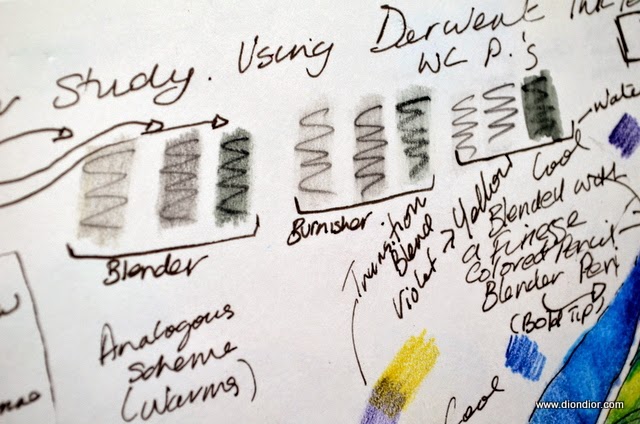 Study. Using Derwent
WC P.'s
Blender
Burnisher
Water
Transition
Blend
Violet → Yellow
Cool
Blended with
a Finesse
Colored Pencil
Blender Pen
(Bold Tip)
Analogous
Scheme
(Warms)
Cool
www.diondior.com